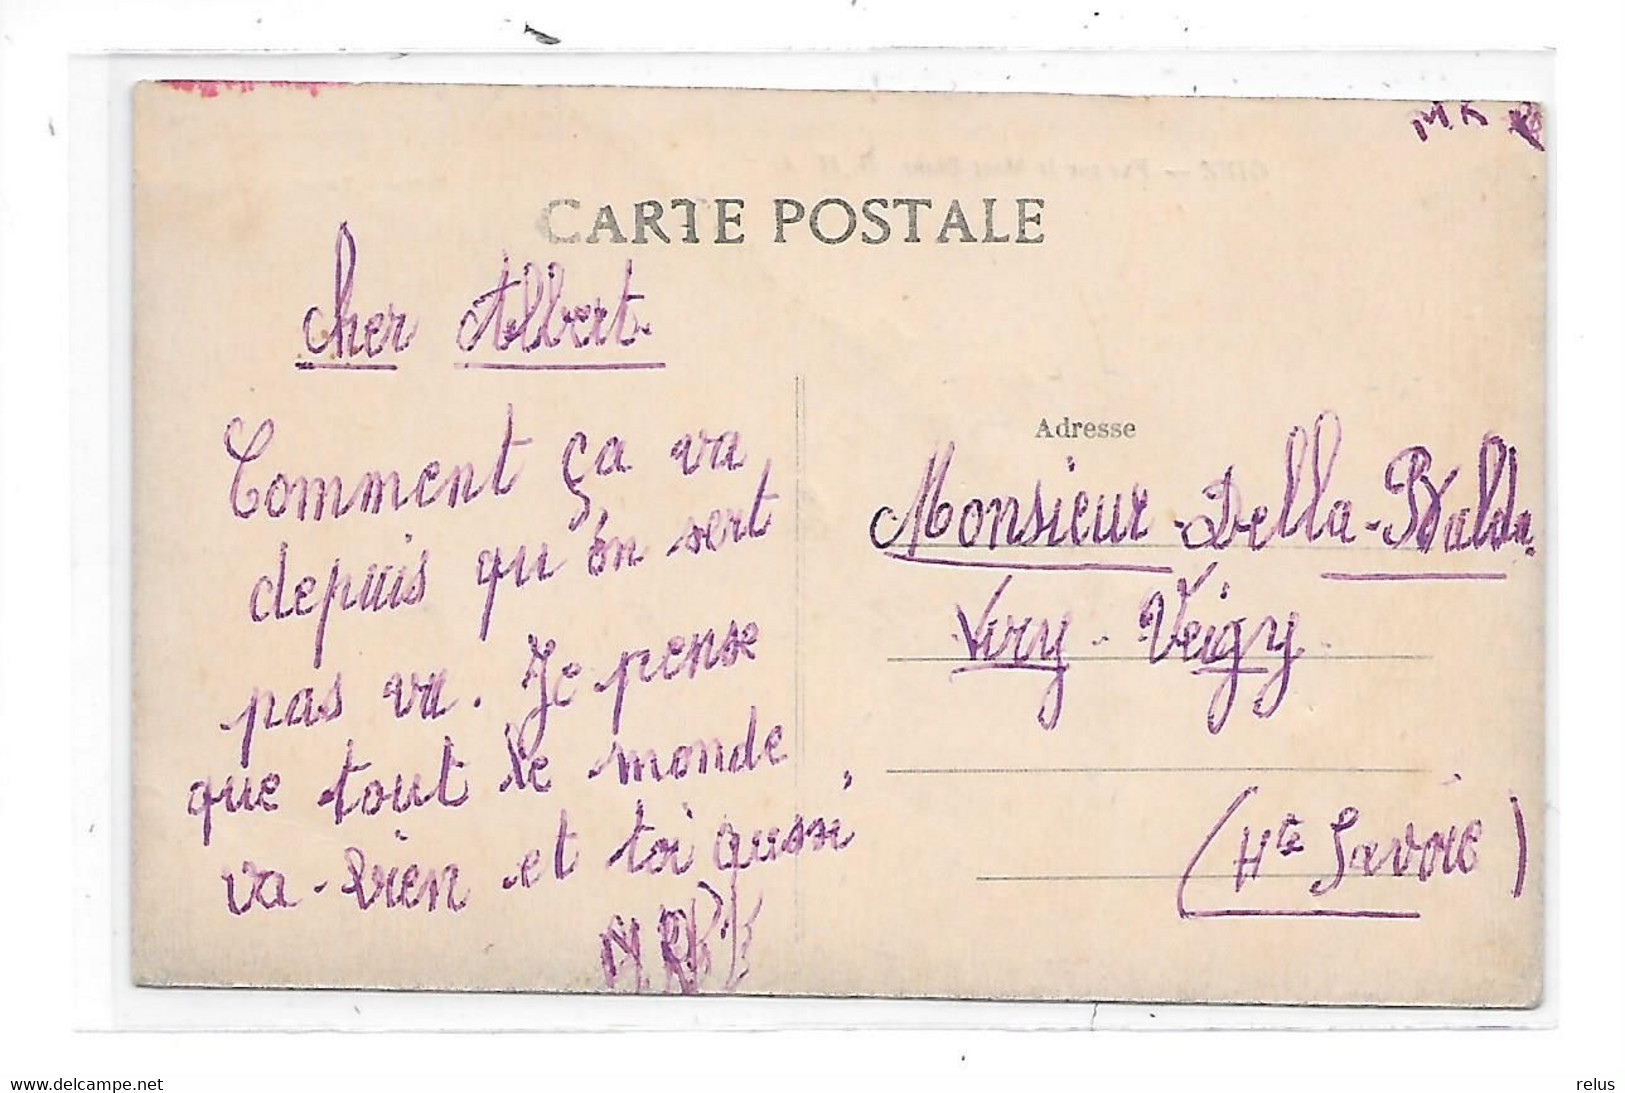 CARTE POSTALE
cher Albert.
Comment ça va
depuis qu'on sert
pas va. Je pense
que tout le monde
va-bien et toi aussi,
Adresse
Monsieur Della-Balda
Viry-Veigy
(Hte Savoie)
www.delcampe.net
relus